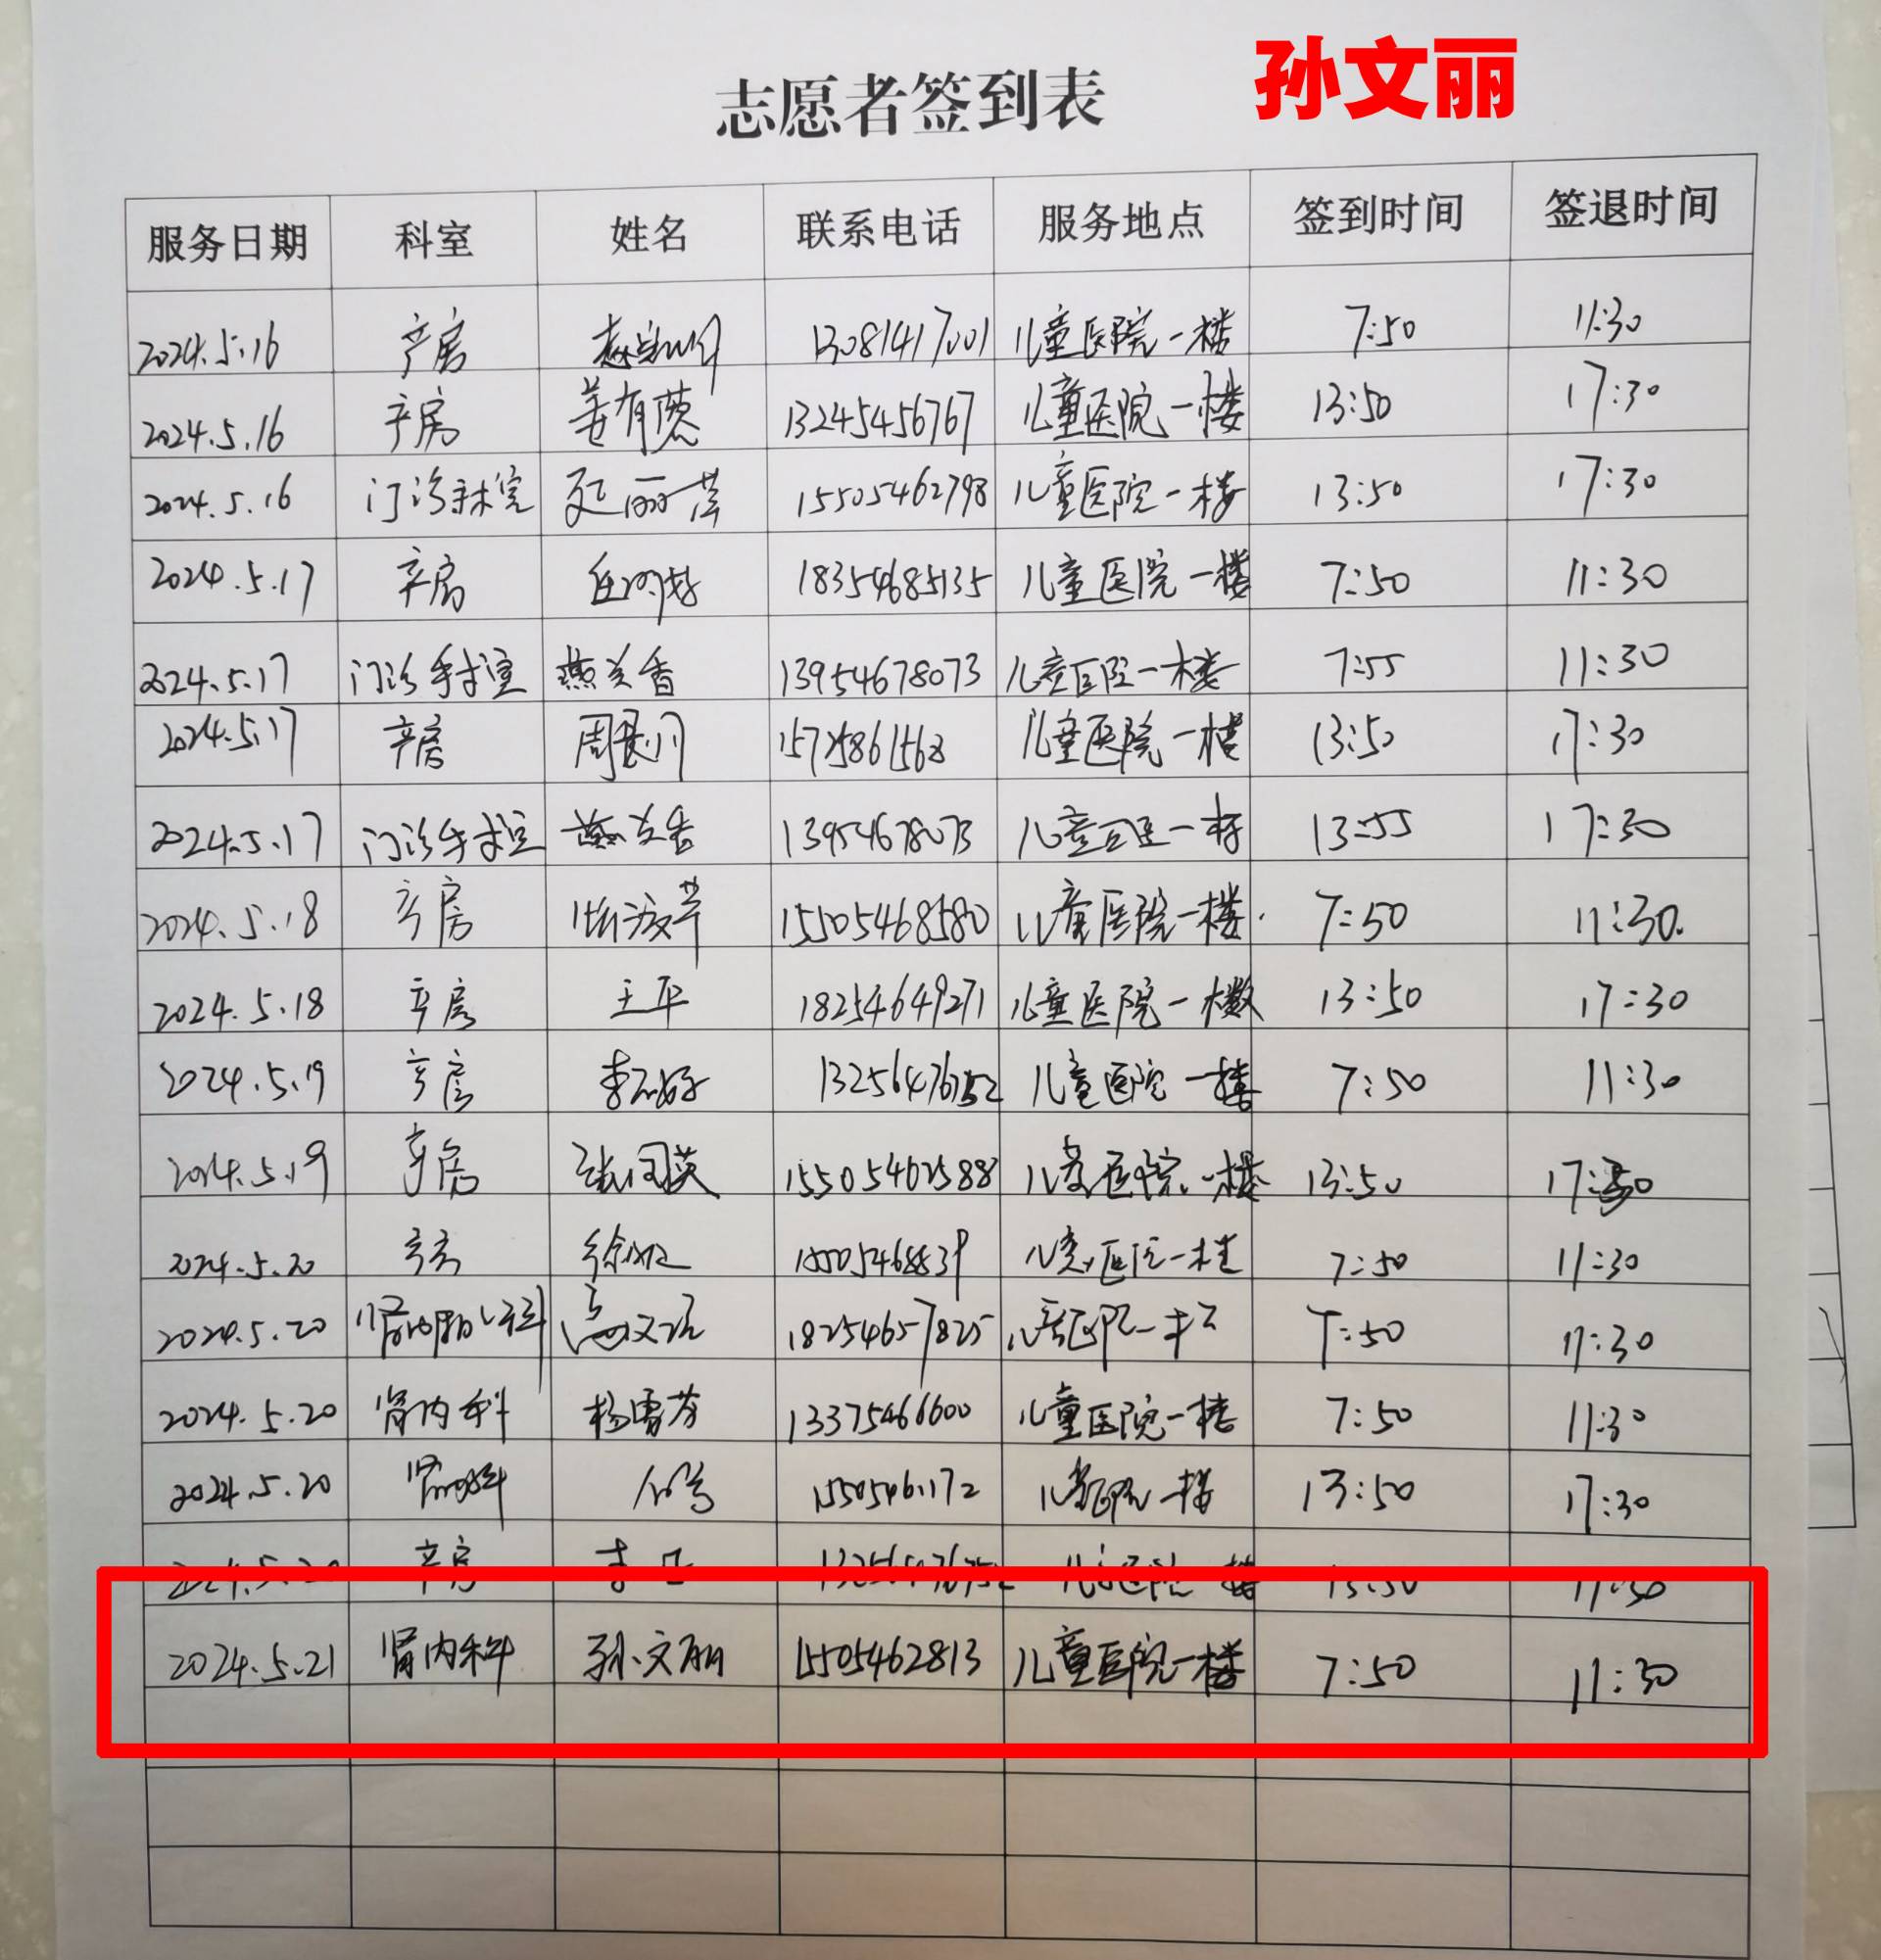 孙文丽
志愿者签到表
服务日期 科室 姓名 联系电话 服务地点 签到时间 签退时间
2024.5.16 产房 13081417001 儿童医院一楼 7:50 11:30
2024.5.16 产房 姜有慧 13245456767 儿童医院一楼 13:50 17:30
2024.5.16 门诊手术室 延丽萍 15505462798 儿童医院一楼 13:50 17:30
2024.5.17 产房 18354685135 儿童医院一楼 7:50 11:30
2024.5.17 门诊手术室 燕兰香 13954678073 儿童医院一楼 7:55 11:30
2024.5.17 产房 周 儿童医院一楼 13:50 17:30
2024.5.17 门诊手术室 燕兰香 13954678073 儿童医院一楼 13:55 17:30
2024.5.18 产房 15505468580 儿童医院一楼. 7:50 11:30.
2024.5.18 产房 王平 18254649271 儿童医院一楼 13:50 17:30
2024.5.19 产房 李 13256476752 儿童医院一楼 7:50 11:30
2024.5.19 产房 张同英 15505462588 儿童医院一楼 13:50 17:30
2024.5.20 产房 徐 儿童医院一楼 7:50 11:30
2024.5.20 18254657825 儿童医院一楼 7:50 11:30
2024.5.20 肾内科 杨雪芬 13375466600 儿童医院一楼 7:50 11:30
2024.5.20 肾内科 儿童医院一楼 13:50 17:30
2024.5.20 产房 李 儿童医院一楼 13:50
2024.5.21 肾内科 孙文丽 15505462813 儿童医院一楼 7:50 11:30